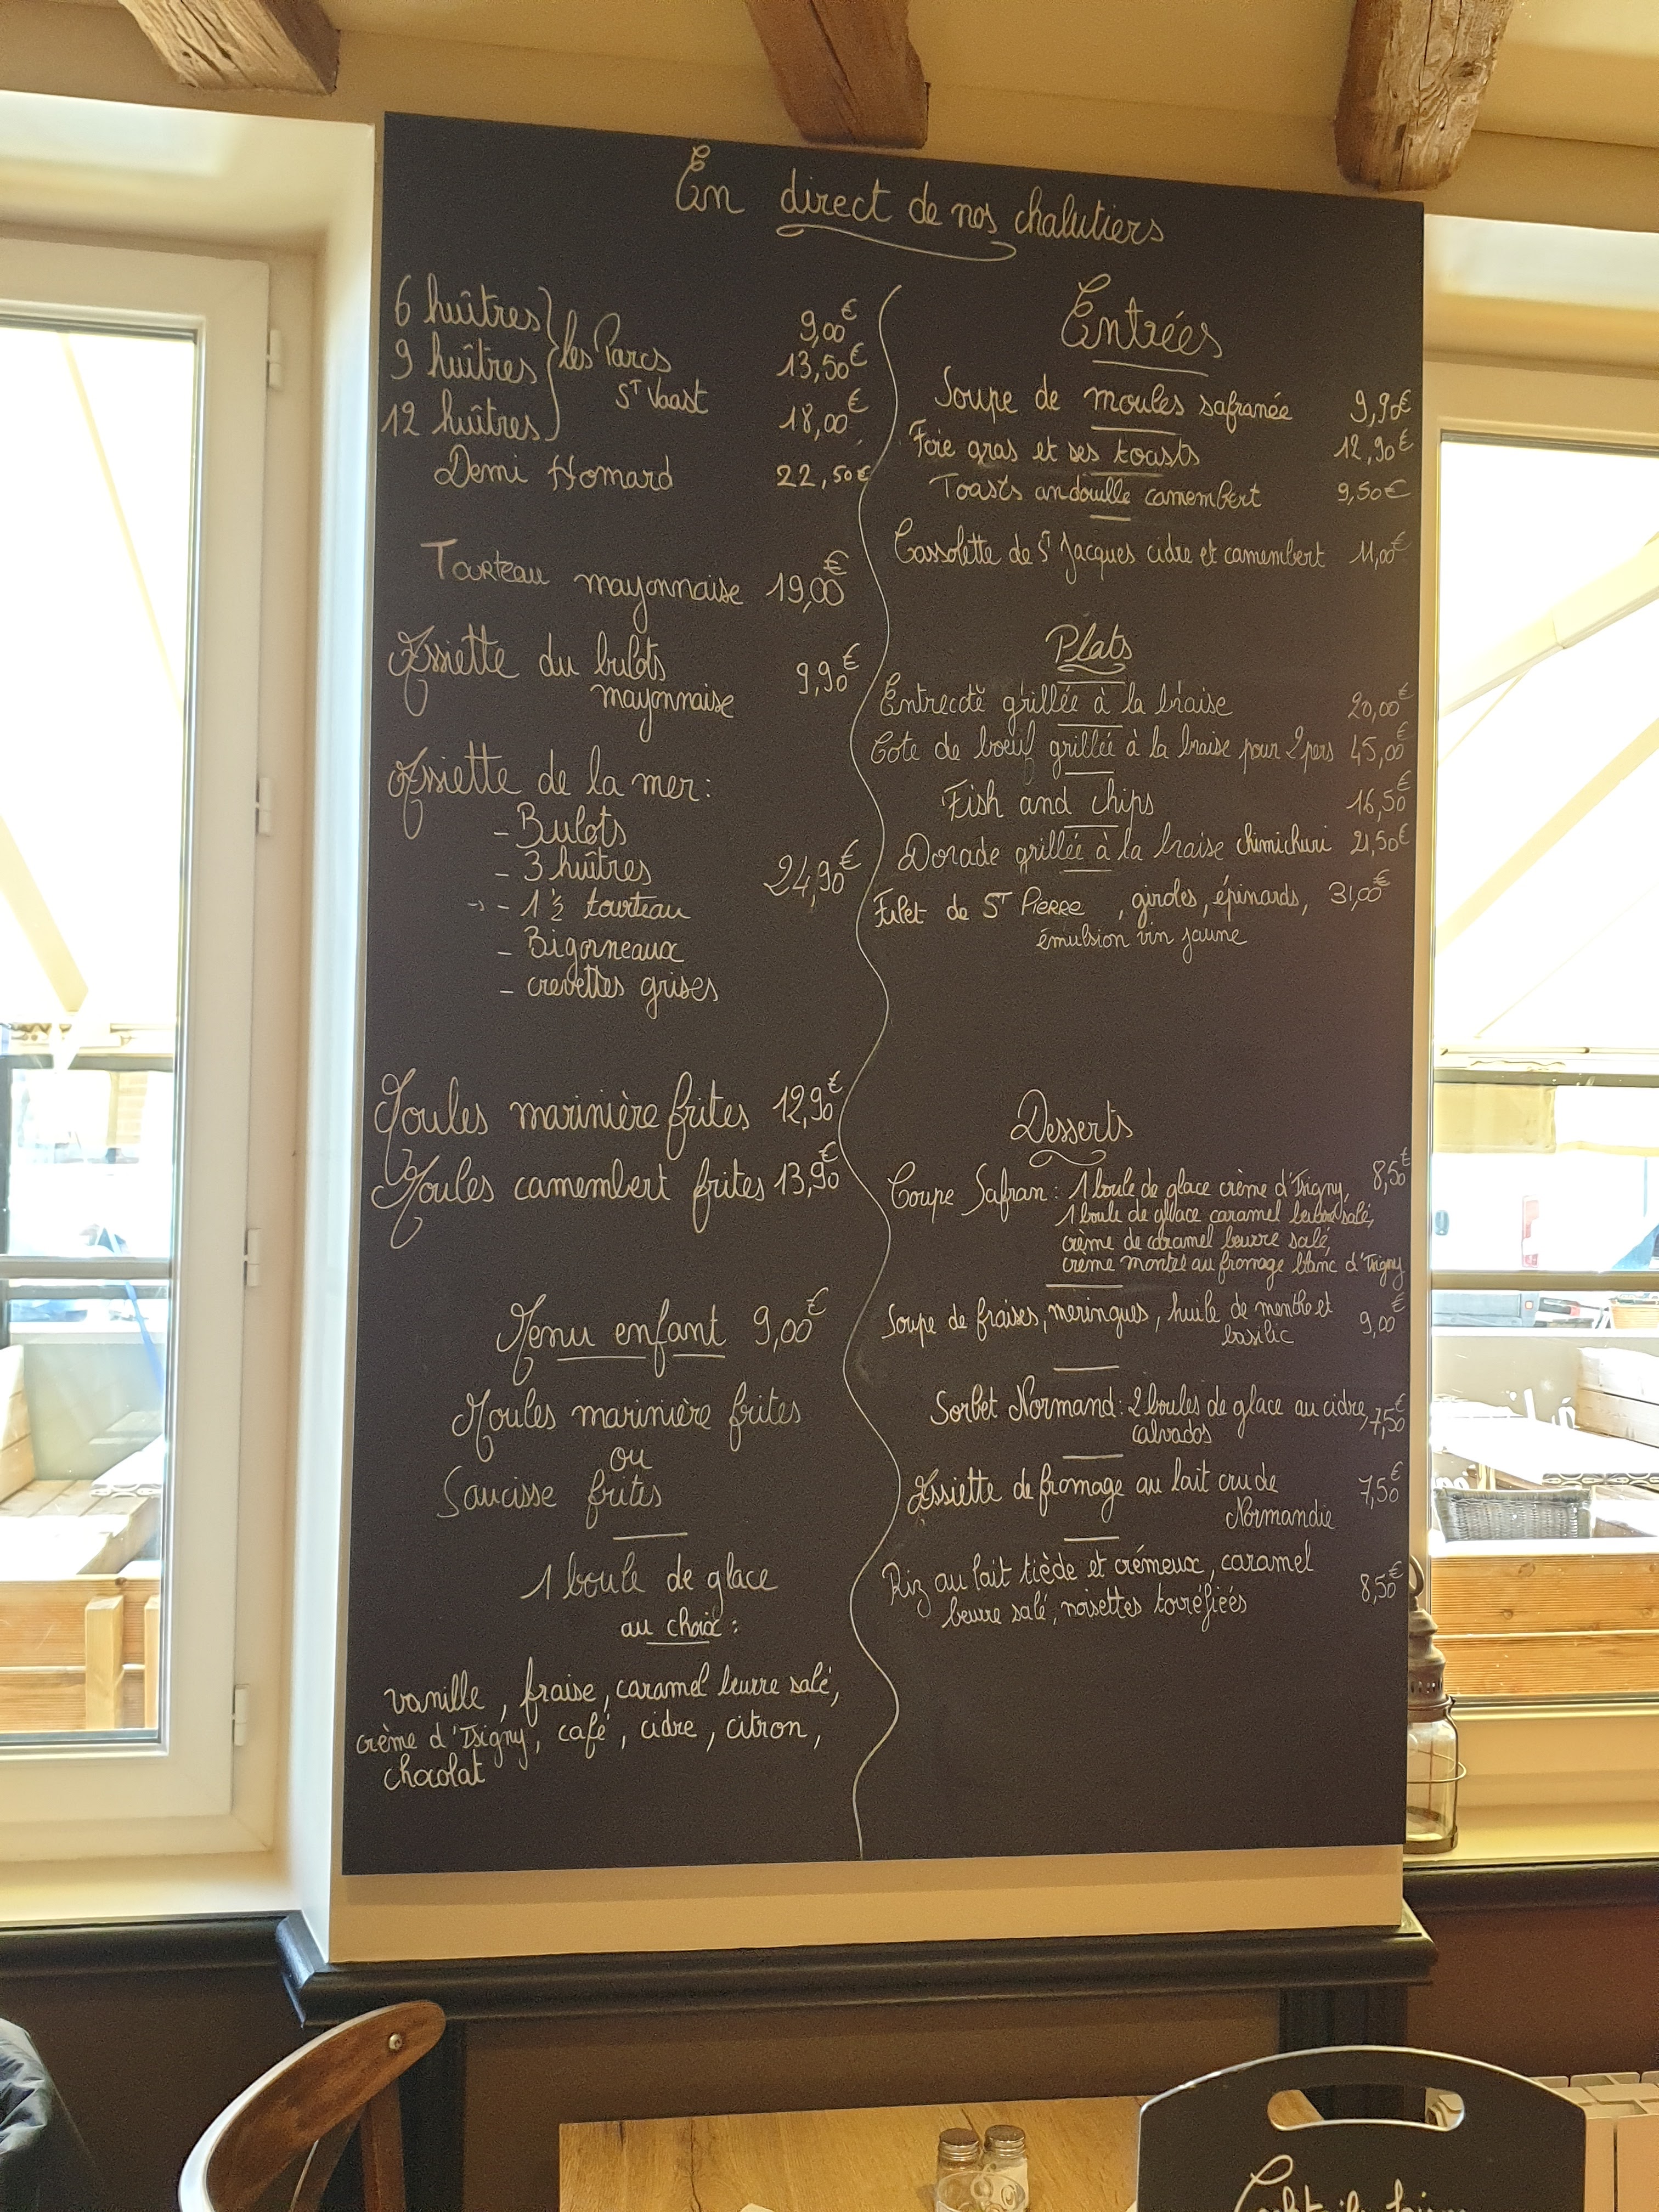 En direct de nos chalutiers
6 huîtres 9,00€
9 huîtres les Parcs 13,50€
St Vaast
12 huîtres 18,00€
Demi Homard 22,50€
Tourteau mayonnaise 19,00€
Assiette du bulots 9,90€
mayonnaise
Assiette de la mer:
- Bulots
- 3 huîtres 24,90€
- 1 ½ tourteau
- Bigorneaux
- crevettes grises
Moules marinière frites 12,90€
Moules camembert frites 13,90€
Menu enfant 9,00€
Moules marinière frites
ou
Saucisse frites
1 boule de glace
au choix :
vanille, fraise, caramel beurre salé,
crème d'Isigny, café, cidre, citron,
chocolat
Entrées
Soupe de moules safranée 9,90€
Foie gras et ses toasts 12,90€
Toasts andouille camembert 9,50€
Cassolette de St Jacques cidre et camembert 11,00€
Plats
Entrecôte grillée à la braise 20,00€
Cote de boeuf grillée à la braise pour 2 pers 45,00€
Fish and chips 16,50€
Dorade grillée à la braise chimichuri 21,50€
Filet de ST PIERRE, giroles, épinards, 31,00€
émulsion vin jaune
Desserts
Coupe Safran : 1 boule de glace crème d'Isigny, 8,50€
1 boule de glace caramel beurre salé,
crème de caramel beurre salé,
crème montée au fromage blanc d'Isigny
Soupe de fraises, meringues, huile de menthe et 9,00€
basilic
Sorbet Normand : 2 boules de glace au cidre, 7,50€
calvados
Assiette de fromage au lait cru de 7,50€
Normandie
Riz au lait tiède et crémeux, caramel 8,50€
beurre salé, noisettes torréfiées